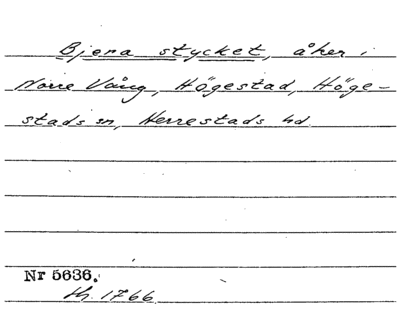 Bjena stycket, åker i
Norre Vång, Högestad, Höge-
stads sn, Herrestads hd.
Nr 5636.
th. 1766